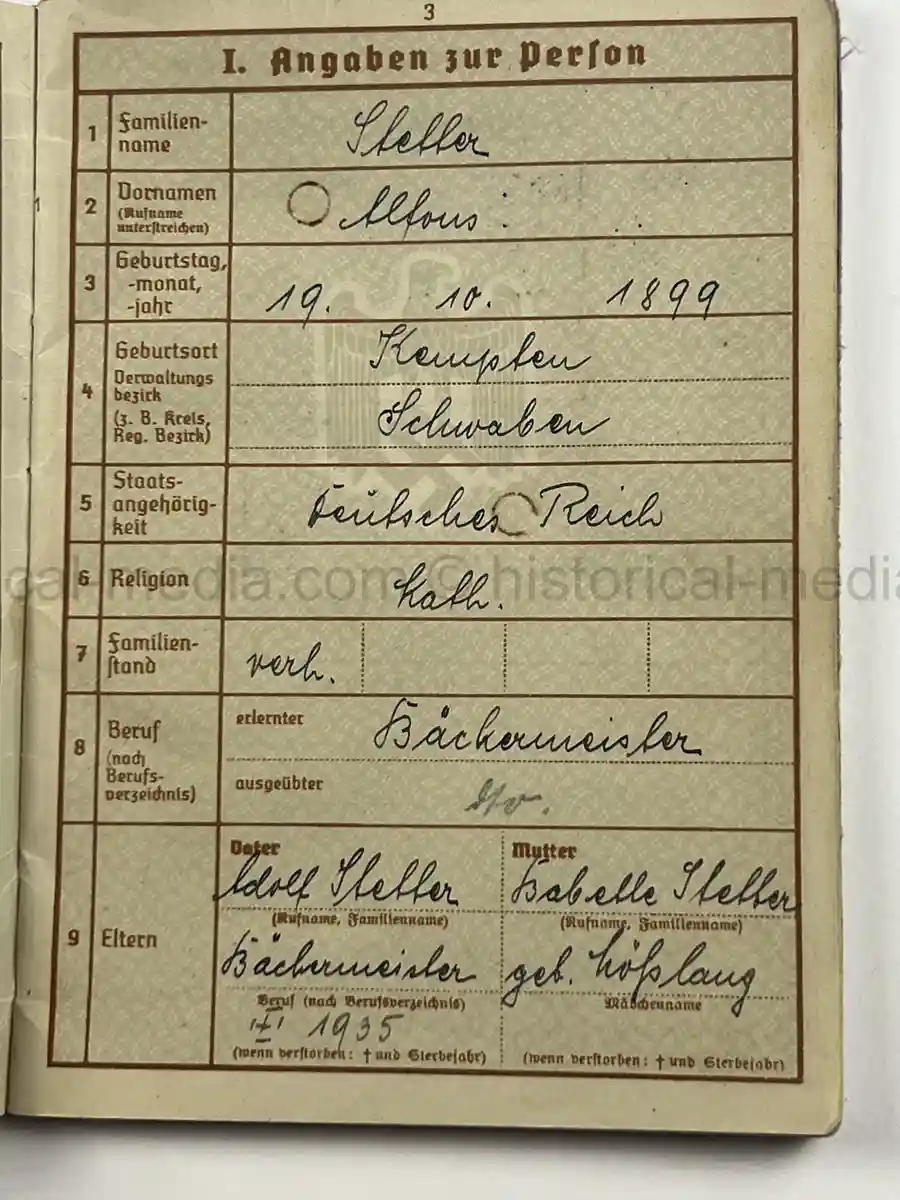 3
I. Angaben zur Person
1 Familien-
name
Stetter
2 Vornamen
(Rufname
unterstreichen)
Alfons
3 Geburtstag,
-monat,
-jahr
19. 10. 1899
4 Geburtsort
Verwaltungs
bezirk
(z. B. Kreis,
Reg. Bezirk)
Kempten
Schwaben
5 Staats-
angehörig-
keit
Deutsches Reich
6 Religion
kath.
7 Familien-
stand
verh.
8 Beruf
(nach
Berufs-
verzeichnis)
erlernter Bäckermeister
ausgeübter
9 Eltern
Vater
Adolf Stetter
(Rufname, Familienname)
Bäckermeister
Beruf (nach Berufsverzeichnis)
1935
(wenn verstorben: † und Sterbejahr)
Mutter
Babette Stetter
(Rufname, Familienname)
geb.
Mädchenname
(wenn verstorben: † und Sterbejahr)
cal-media.com © historical-media